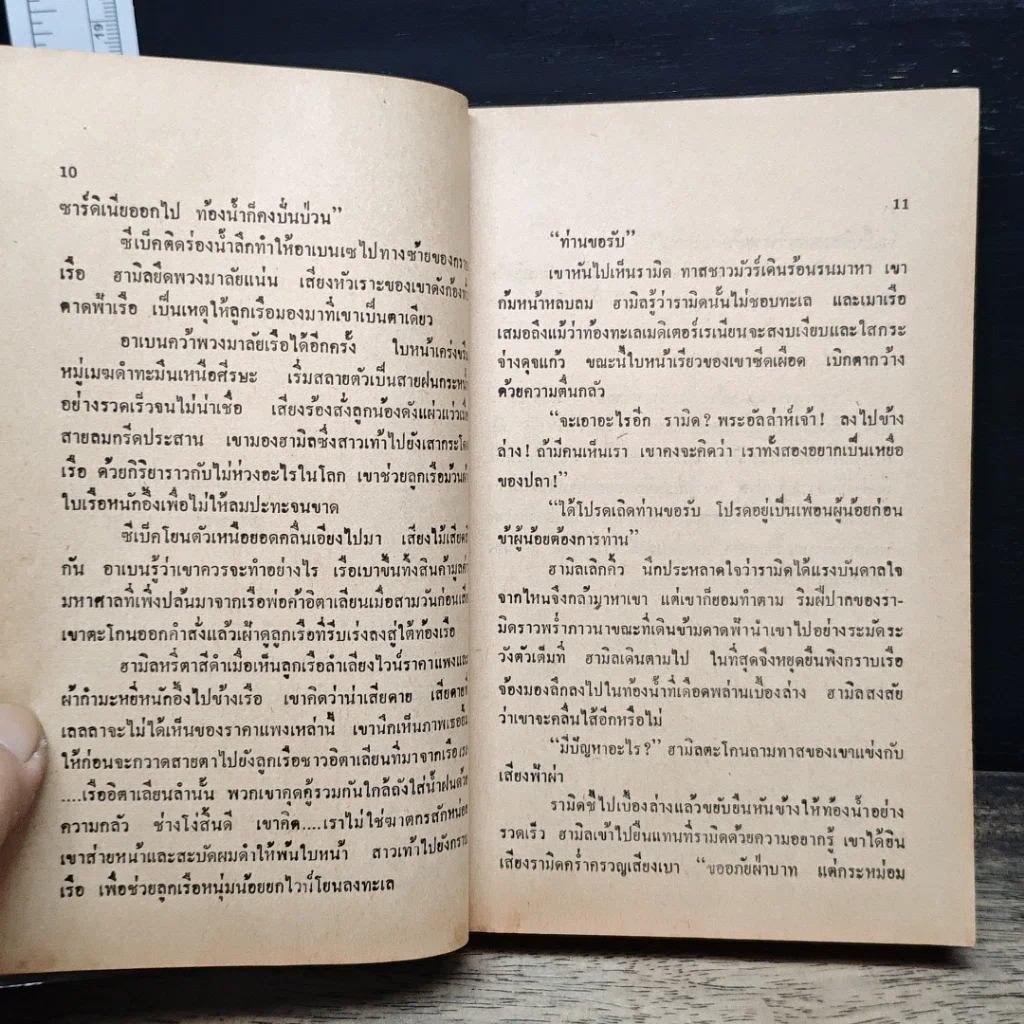 19
10
ซาร์ดิเนียออกไป ท้องน้ำก็คงปั่นป่วน”
ซีเบ็คติดร่องน้ำลึกทำให้อาเบนเซไปทางซ้ายของกราบ
เรือ ฮามิลยึดพวงมาลัยแน่น เสียงหัวเราะของเขาดังก้อง
ดาดฟ้าเรือ เป็นเหตุให้ลูกเรือมองมาที่เขาเป็นตาเดียว
อาเบนคว้าพวงมาลัยเรือได้อีกครั้ง ใบหน้าเคร่งขรึม
หมู่เมฆดำทะมึนเหนือศีรษะ เริ่มสลายตัวเป็นสายฝนกระหน่ำ
อย่างรวดเร็วจนไม่น่าเชื่อ เสียงร้องสั่งลูกน้องดังแผ่วแว่ว
สายลมกรีดประสาน เขามองฮามิลซึ่งสาวเท้าไปยังเสากระโดง
เรือ ด้วยกิริยาราวกับไม่ห่วงอะไรในโลก เขาช่วยลูกเรือม้วน
ใบเรือหนักอึ้งเพื่อไม่ให้ลมปะทะจนขาด
ซีเบ็คโยนตัวเหนือยอดคลื่นเอียงไปมา เสียงไม้เสียดสี
กัน อาเบนรู้ว่าเขาควรจะทำอย่างไร เรือเบาขึ้นทิ้งสินค้ามูลค่า
มหาศาลที่เพิ่งปล้นมาจากเรือพ่อค้าอิตาเลียนเมื่อสามวันก่อน
เขาตะโกนออกคำสั่งแล้วเฝ้าดูลูกเรือที่รีบเร่งลงสู่ใต้ท้องเรือ
ฮามิลหรี่ตาสีดำเมื่อเห็นลูกเรือลำเลียงไวน์ราคาแพงและ
ผ้ากำมะหยี่หนักอึ้งไปข้างเรือ เขาคิดว่าน่าเสียดาย เสียดายที่
เลลลาจะไม่ได้เห็นของราคาแพงเหล่านี้ เขานึกเห็นภาพเธอยิ้ม
ให้ก่อนจะกวาดสายตาไปยังลูกเรือชาวอิตาเลียนที่มาจากเรือ
....เรืออิตาเลียนลำนั้น พวกเขาคุดคู้รวมกันใกล้ถังใส่น้ำฝนด้วย
ความกลัว ช่างโง่สิ้นดี เขาคิด....เราไม่ใช่ฆาตกรสักหน่อย
เขาส่ายหน้าและสะบัดผมดำให้พ้นใบหน้า สาวเท้าไปยังกราบ
เรือ เพื่อช่วยลูกเรือหนุ่มน้อยยกไวน์โยนลงทะเล
11
“ท่านขอรับ”
เขาหันไปเห็นรามิด ทาสชาวมัวร์เดินร้อนรนมาหา เขา
ก้มหน้าหลบลม ฮามิลรู้ว่ารามิดนั้นไม่ชอบทะเล และเมาเรือ
เสมอถึงแม้ว่าท้องทะเลเมดิเตอร์เรเนียนจะสงบเงียบและใสกระ
จ่างดุจแก้ว ขณะนี้ใบหน้าเรียวของเขาซีดเผือด เบิกตากว้าง
ด้วยความตื่นกลัว
“จะเอาอะไรอีก รามิด? พระอัลล่าห์เจ้า! ลงไปข้าง
ล่าง! ถ้ามีคนเห็นเรา เขาคงจะคิดว่า เราทั้งสองอยากเป็นเหยื่อ
ของปลา!”
“ได้โปรดเถิดท่านขอรับ โปรดอยู่เป็นเพื่อนผู้น้อยก่อน
ข้าผู้น้อยต้องการท่าน”
ฮามิลเลิกคิ้ว นึกประหลาดใจว่ารามิดได้แรงบันดาลใจ
จากไหนจึงกล้ามาหาเขา แต่เขาก็ยอมทำตาม ริมฝีปากของรา-
มิดราวพร่ำภาวนาขณะที่เดินข้ามดาดฟ้านำเขาไปอย่างระมัดระ
วังตัวเต็มที่ ฮามิลเดินตามไป ในที่สุดจึงหยุดยืนพิงกราบเรือ
จ้องมองลึกลงไปในท้องน้ำที่เดือดพล่านเบื้องล่าง ฮามิลสงสัย
ว่าเขาจะคลื่นไส้อีกหรือไม่
“มีปัญหาอะไร?” ฮามิลตะโกนถามทาสของเขาแข่งกับ
เสียงฟ้าผ่า
รามิดชี้ไปเบื้องล่างแล้วขยับยืนหันข้างให้ท้องน้ำอย่าง
รวดเร็ว ฮามิลเข้าไปยืนแทนที่รามิดด้วยความอยากรู้ เขาได้ยิน
เสียงรามิดคร่ำครวญเสียงเบา “ขออภัยฝ่าบาท แต่กระหม่อม